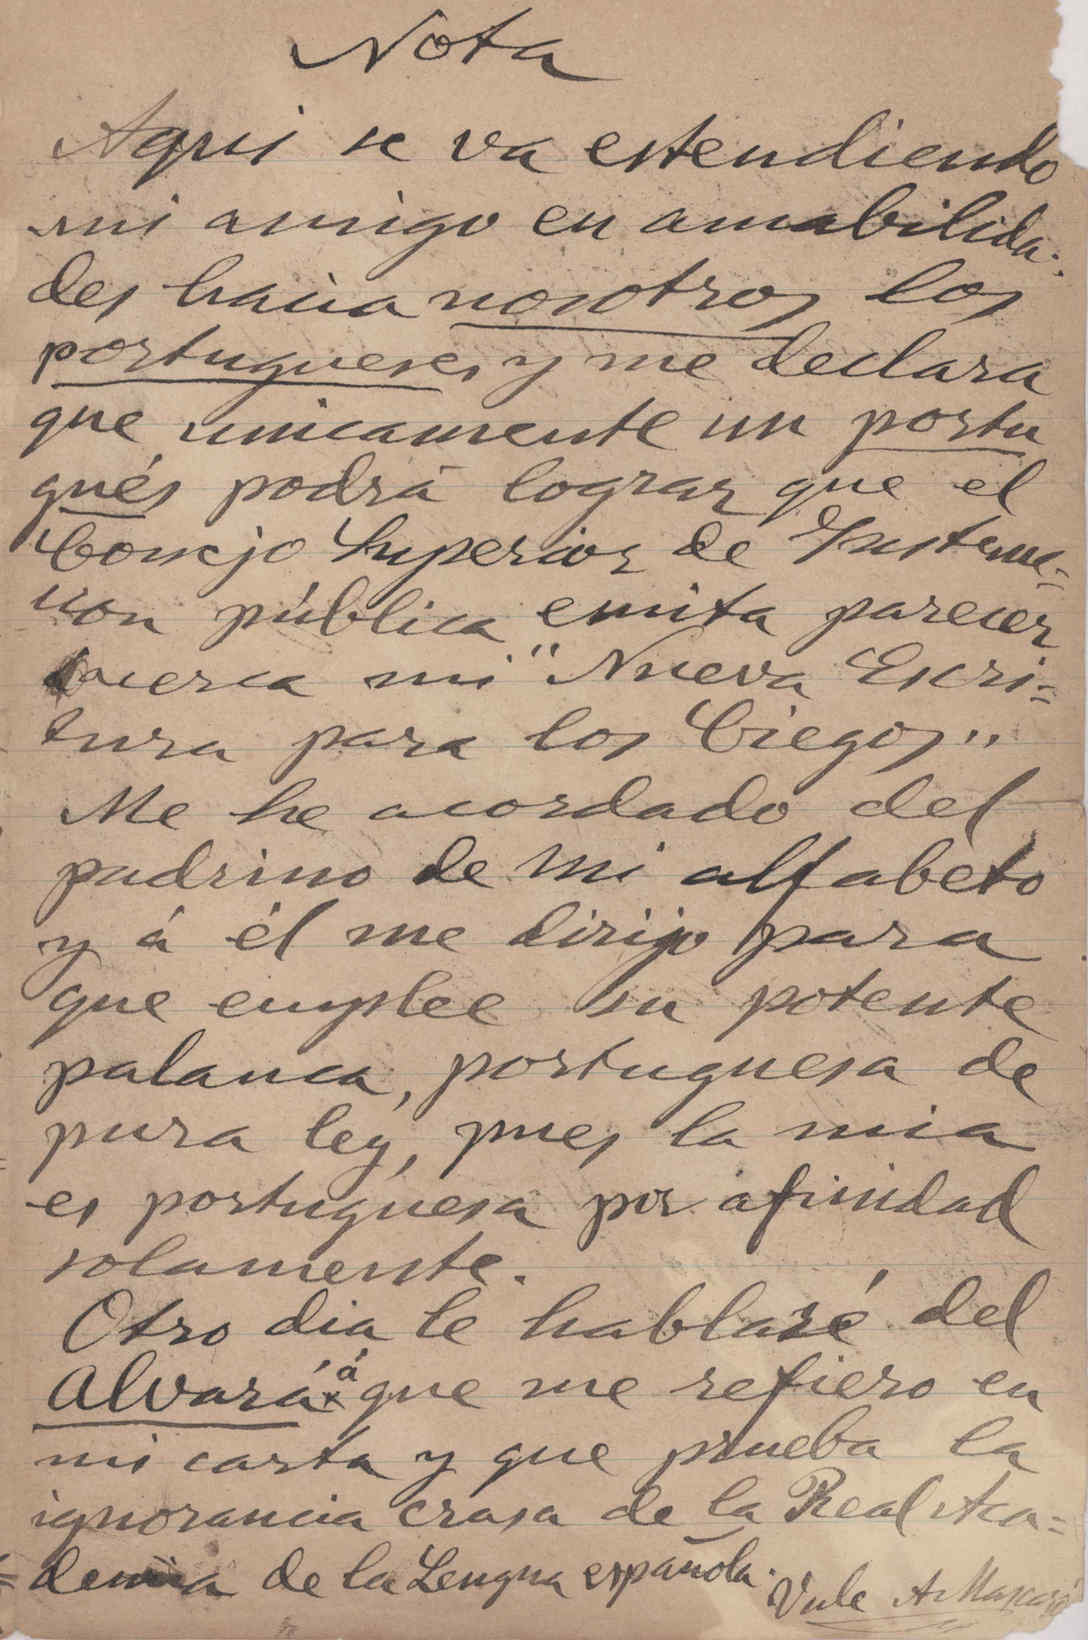 Nota
Aqui se va estendiendo
mi amigo en amabilida-
des hacia nosotros los
portugueses y me declara
que unicamente un portu
gués podrá lograr que el
Consejo Superior de Instruc-
cion pública emita parecer
acerca mi "Nueva Escri=
tura para los Ciegos"
Me he acordado del
padrino de mi alfabeto
y á él me dirijo para
que emplee su potente
palanca, portuguesa de
pura ley, pues la mia
es portuguesa por afinidad
solamente.
Otro dia le hablaré del
Alvará á que me refiero en
mi carta y que prueba la
ignorancia crasa de la Real Aca=
demia de la Lengua española.
Vale A. Mascaró